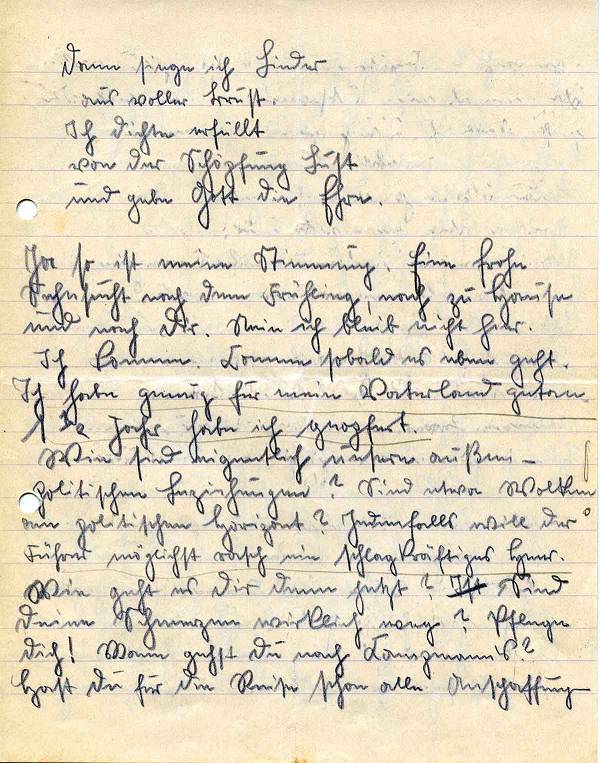 Dann singe ich Lieder
aus voller Brust.
Ich dichte erfüllt
von der Schöpfung Lust
und gebe Gott die Ehre.
Ja so ist meine Stimmung. Eine frohe
Sehnsucht nach dem Frühling, nach zu Hause
und nach Dir. Nein ich bleib nicht hier.
Ich komme. Komme sobald es eben geht.
Ich habe genug für mein Vaterland getan.
Jahre habe ich geopfert.
Wie sind eigentlich unsere außen-
politischen Beziehungen? Sind etwa Wolken
am politischen Horizont? Jedenfalls will der
Führer möglichst rasch ein schlagkräftiges Heer.
Wie geht es Dir denn jetzt? Sind
Deine Schmerzen wirklich weg? Pflege
Dich! Wann gehst Du nach
Hast Du für die Reise schon alle Anschaffung